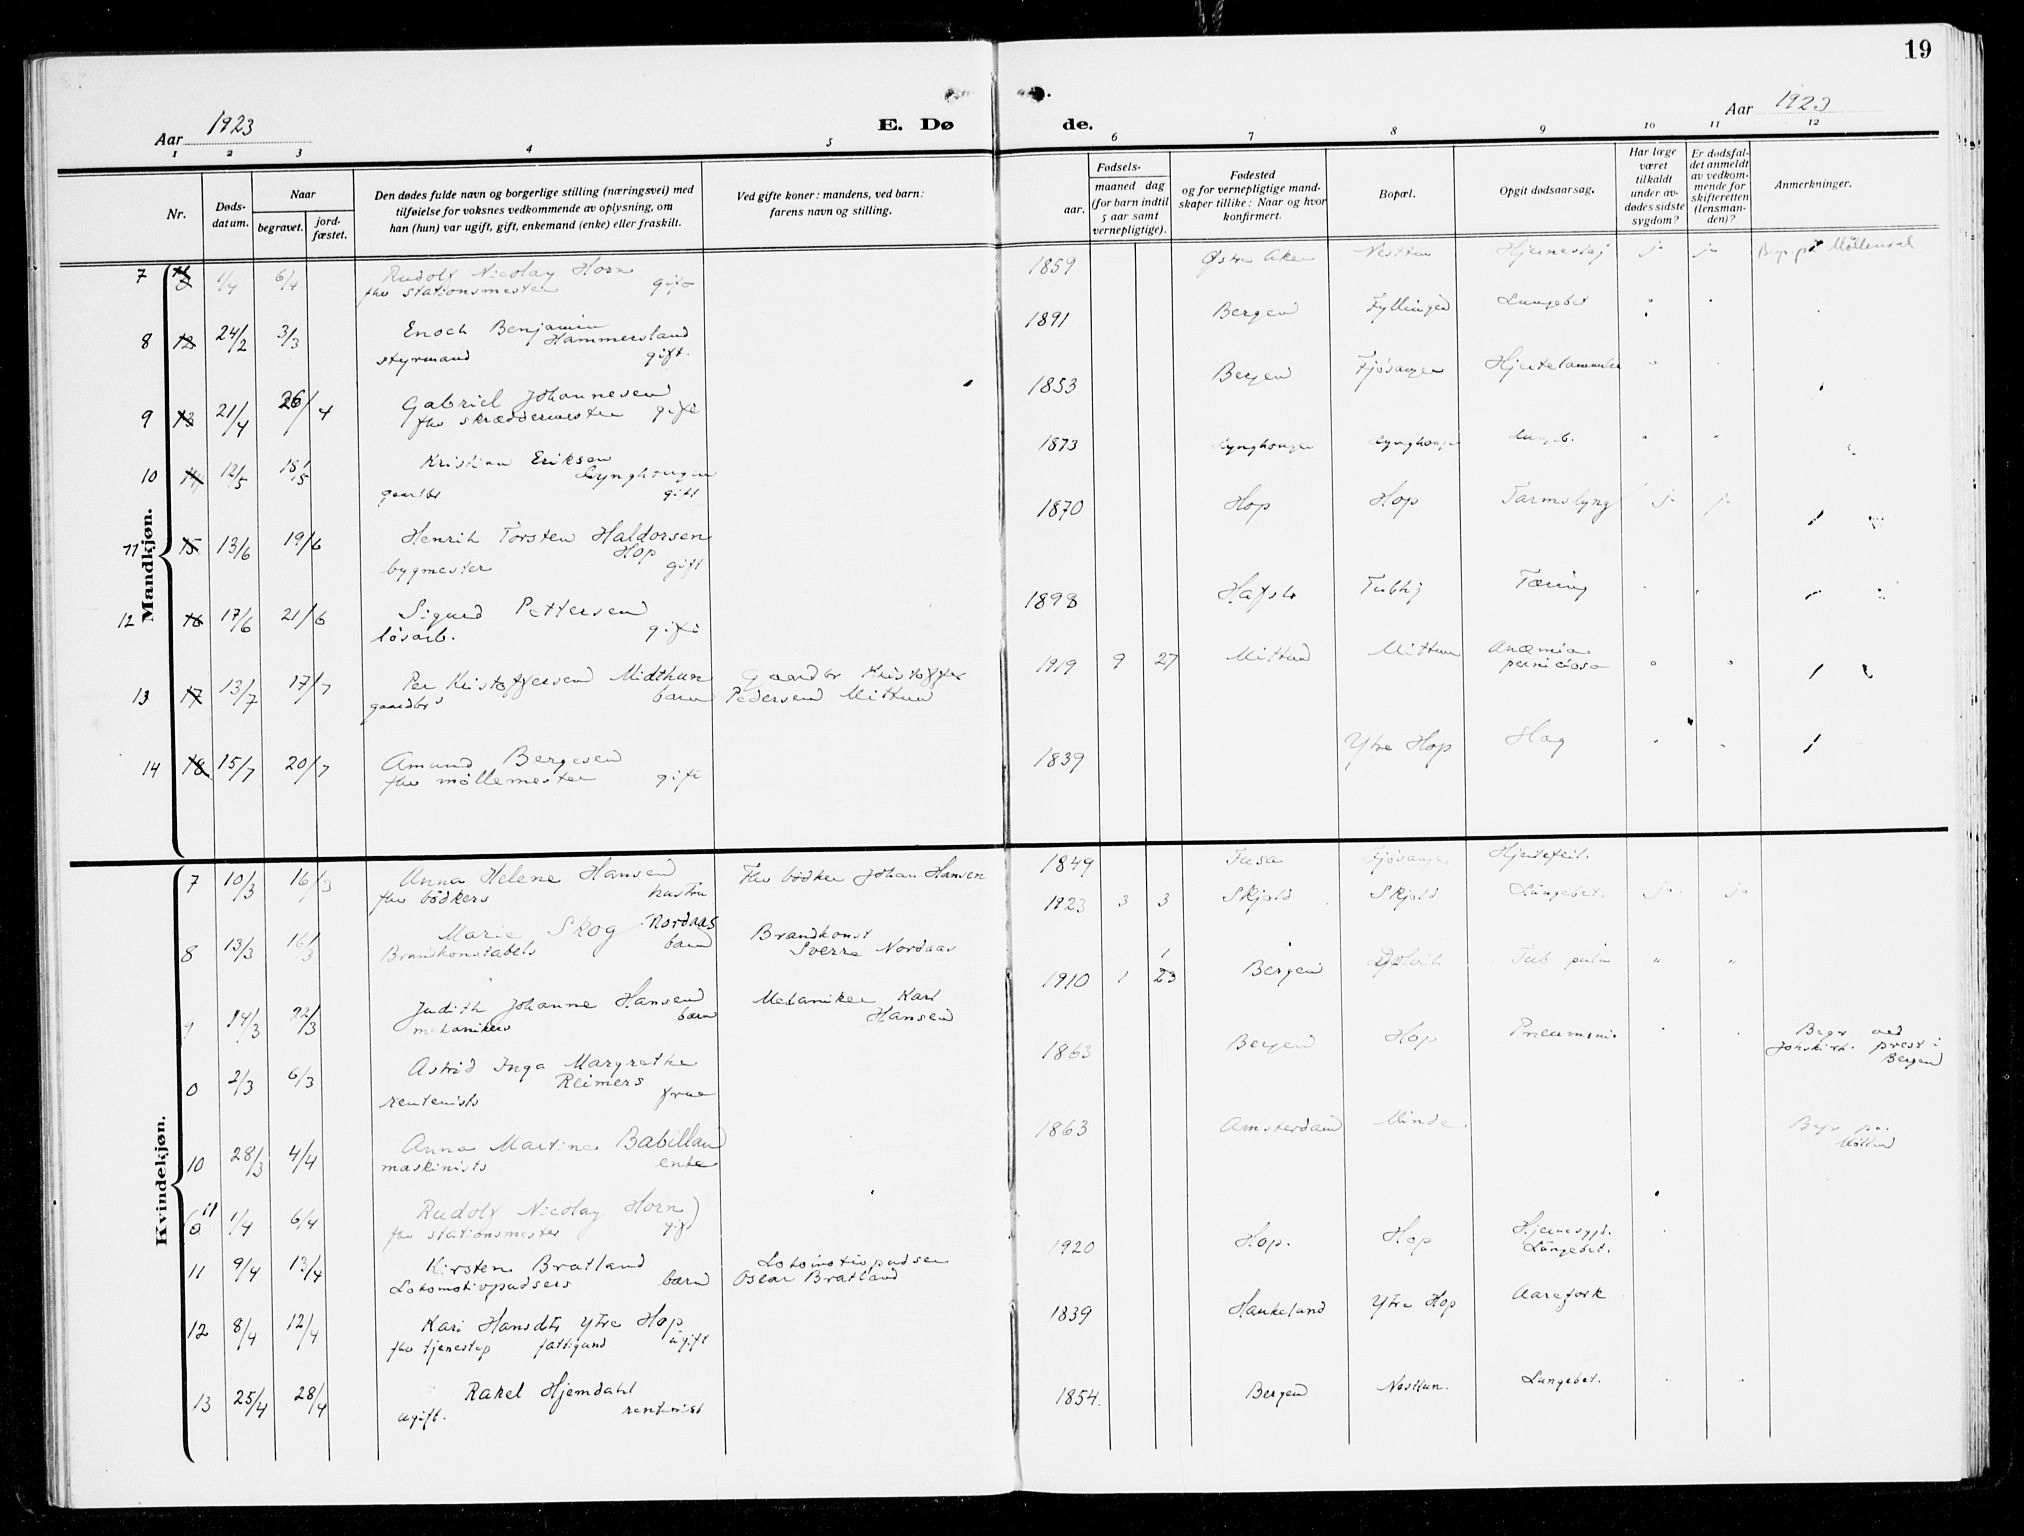 19
Aar 1923
E. Dø de.
Aar 1923
1 2 3 4 5 6 7 8 9 10 11 12
Nr.
Døds-
datum.
Naar
begravet.
jord-
fæstet.
Den dødes fulde navn og borgerlige stilling (næringsvei) med
tilføielse for voksnes vedkommende av oplysning, om
han (hun) var ugift, gift, enkemand (enke) eller fraskilt.
Ved gifte koner: mandens, ved barn:
farens navn og stilling.
Fødsels-
aar.
maaned dag
(for barn indtil
5 aar samt
vernepligtige).
Fødested
og for vernepligtige mand-
skaper tillike: Naar og hvor
konfirmert.
Bopæl.
Opgit dødsaarsag.
Har læge
været
tilkaldt
under av-
dødes sidste
sygdom?
Er dødsfal-
det anmeldt
av vedkom-
mende for
skifteretten
(lensman-
den)?
Anmerkninger.
Mandkjøn.
7 1/4 6/4 Rudolf Nicolay Horn 1859 Østre Aker Nesttun Hjerneslag ja ja Begr. på Møllendal
fhv stationsmester gift
8 12 24/2 3/3 Enoch Benjamin 1891 Bergen Fyllingen Lungebet
Hammersland
styrmand gift.
9 13 21/4 26/4 Gabriel Johannesen 1853 Bergen Fjøsanger Hjertelammelse
fhv skræddermester gift
10 14 12/5 18/5 Kristian Eriksen 1873 Lynghaugen Lynghaugen Lungeb.
Lynghaugen
gaardbr gift
11 15 13/6 19/6 Henrik Torsten Haldorsen 1870 Hop Hop Tarmslyng ja ja
Hop
bygmester gift
12 16 17/6 21/6 Sigurd Pettersen 1898 Hafslo Tæring
løsarb. gift
13 17 13/7 17/7 Per Kristoffersen Midthun Gaardbr Kristoffer 1919 9 27 Mittun Mittun Anæmia
gaardbrs barn Pedersen Mittun perniciosa
14 18 15/7 20/7 Amund Bergesen 1839 Ytre Hop Slag
fhv møllemester gift
Kvindekjøn.
7 10/3 16/3 Anna Helene Hansen Fhv bødker Johan Hansen 1849 Fusa Fjøsanger Hjertefeil.
fhv bødkers hustru
8 13/3 16/3 Marie Skog Nordaas Brandkonst 1923 3 3 Skjold Skjold Lungebet. ja ja
Brandkonstabels barn Sverre Nordaas
9 14/3 22/3 Judith Johanne Hansen Mekaniker Karl 1910 1 23 Bergen Tub " "
mekanikers barn Hansen
0 2/3 6/3 Astrid Inga Margrethe 1863 Bergen Hop Pneumoni Begr ved
Reimers Jonskirk. prest i
rentenists frue Bergen
10 28/3 4/4 Anna Martine Babilland 1863 Amsterdam Minde Begr på
maskinists enke Møllend
11 0 1/4 6/4 Rudolf Nicolay Horn)
fhv stationsmester gift
11 9/4 13/4 Kirsten Bratland Lokomotivpudser 1920 Hop. Hop Hjernesygd.
Lokomotivpudsers barn Oscar Bratland Lungebet.
12 8/4 12/4 Kari Hansdtr Ytre Hop 1839 Haukeland Ytre Hop Aarefork
fhv tjenestep fattigund ugift
13 25/4 28/4 Rakel Hjemdahl 1854. Bergen Nesttun. Lungebet.
ugift. rentenist